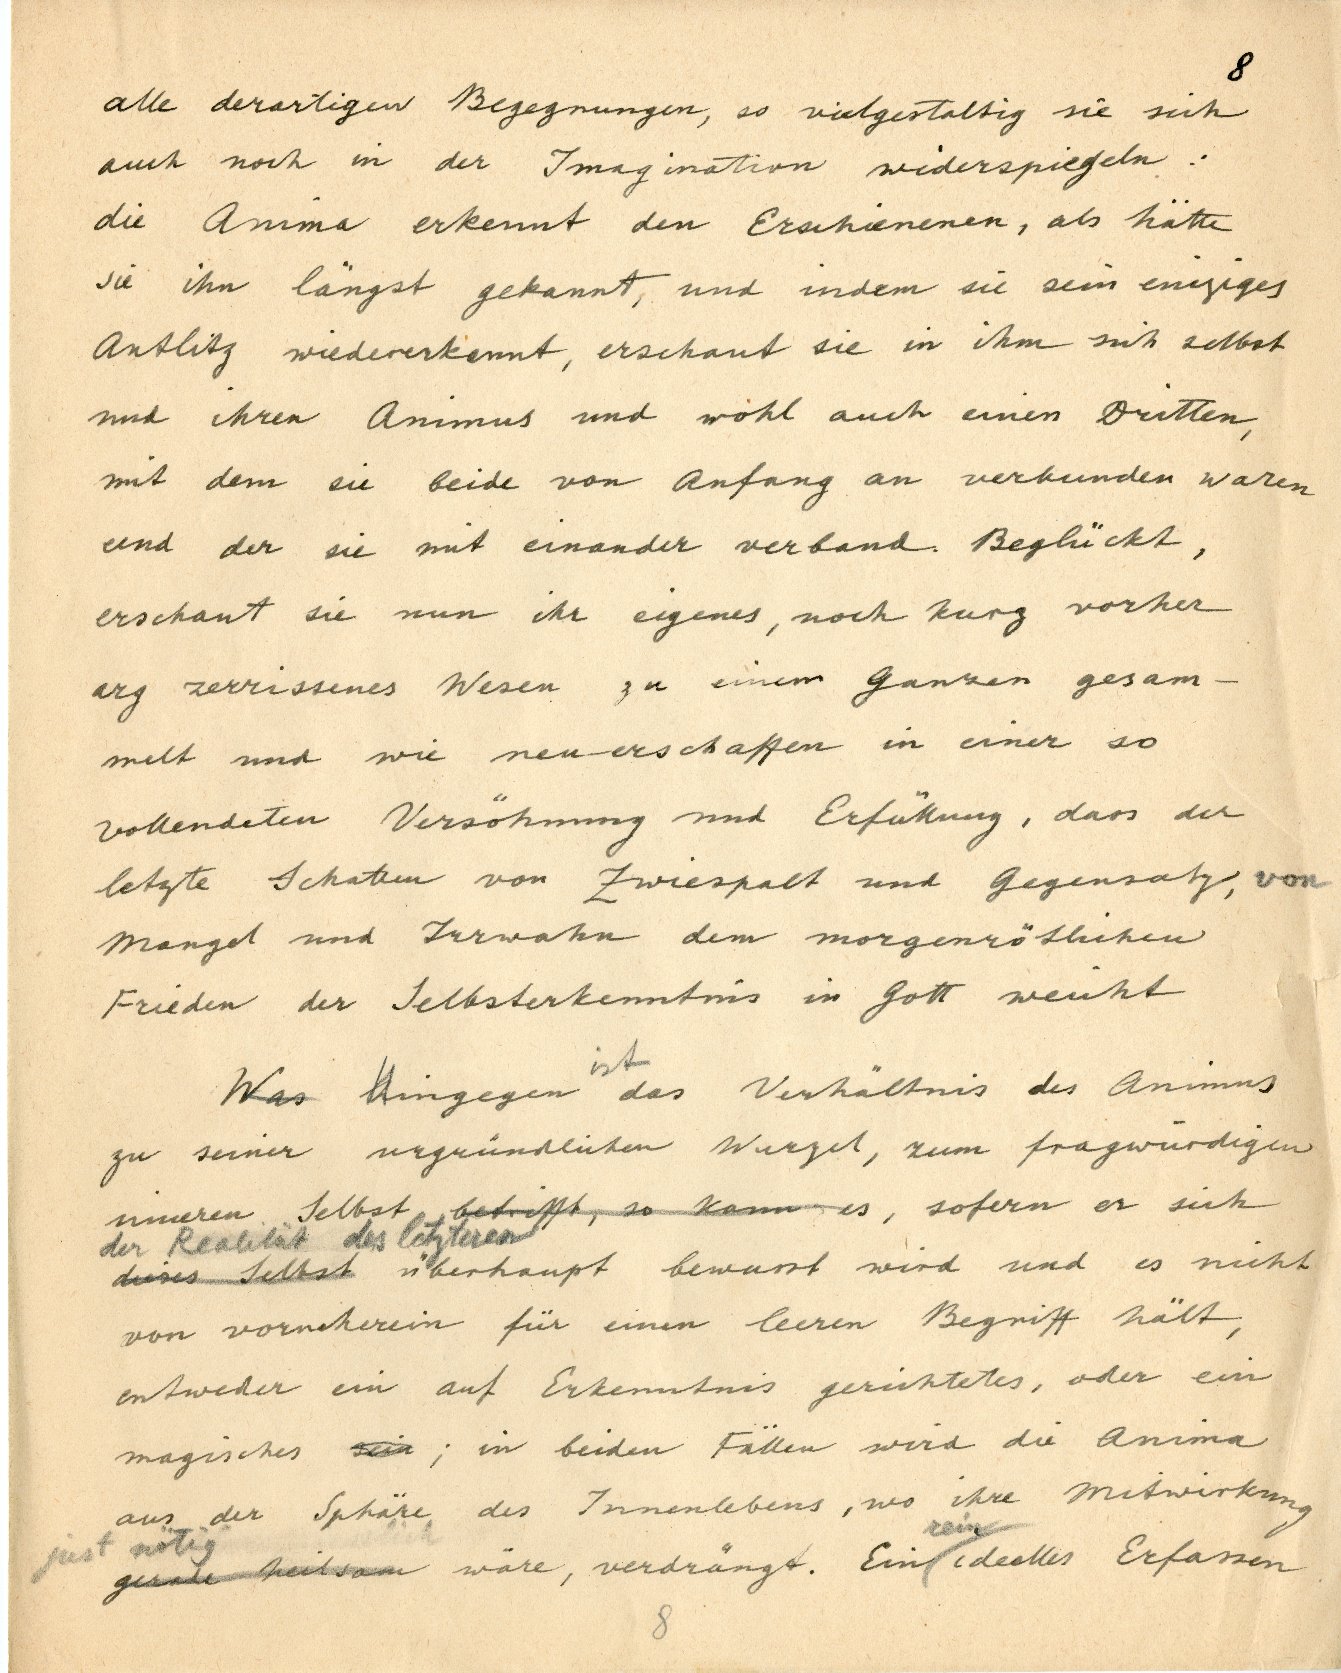 8
alle derartigen Begegnungen, so vielgestaltig sie sich
auch noch in der Imagination widerspiegeln :
die Anima erkennt den Erschienenen, als hätte
sie ihn längst gekannt, und indem sie sein einziges
Antlitz wiedererkennt, erschaut sie in ihm sich selbst
und ihren Animus und wohl auch einen Dritten,
mit dem sie beide von Anfang an verbunden waren
und der sie mit einander verband. Beglückt,
erschaut sie nun ihr eigenes, noch kurz vorher
arg zerrissenes Wesen zu einem Ganzen gesam-
melt und wie neu erschaffen in einer so
vollendeten Versöhnung und Erfüllung, dass der
letzte Schatten von Zwiespalt und Gegensatz, von
Mangel und Irrwahn dem morgenrötlichen
Frieden der Selbsterkenntnis in Gott weicht
Was Hingegen ist das Verhältnis des Animus
zu seiner urgründlichen Wurzel, zum fragwürdigen
inneren Selbst betrifft, so kann es, sofern er sich
der Realität des letzteren
dieses Selbst überhaupt bewusst wird und es nicht
von vorneherein für einen leeren Begriff hält,
entweder ein auf Erkenntnis gerichtetes, oder ein
magisches sein ; in beiden Fällen wird die Anima
aus der Sphäre des Innenlebens, wo ihre Mitwirkung
just nötig
gerade heilsam wäre, verdrängt. Ein rein ideelles Erfassen
8